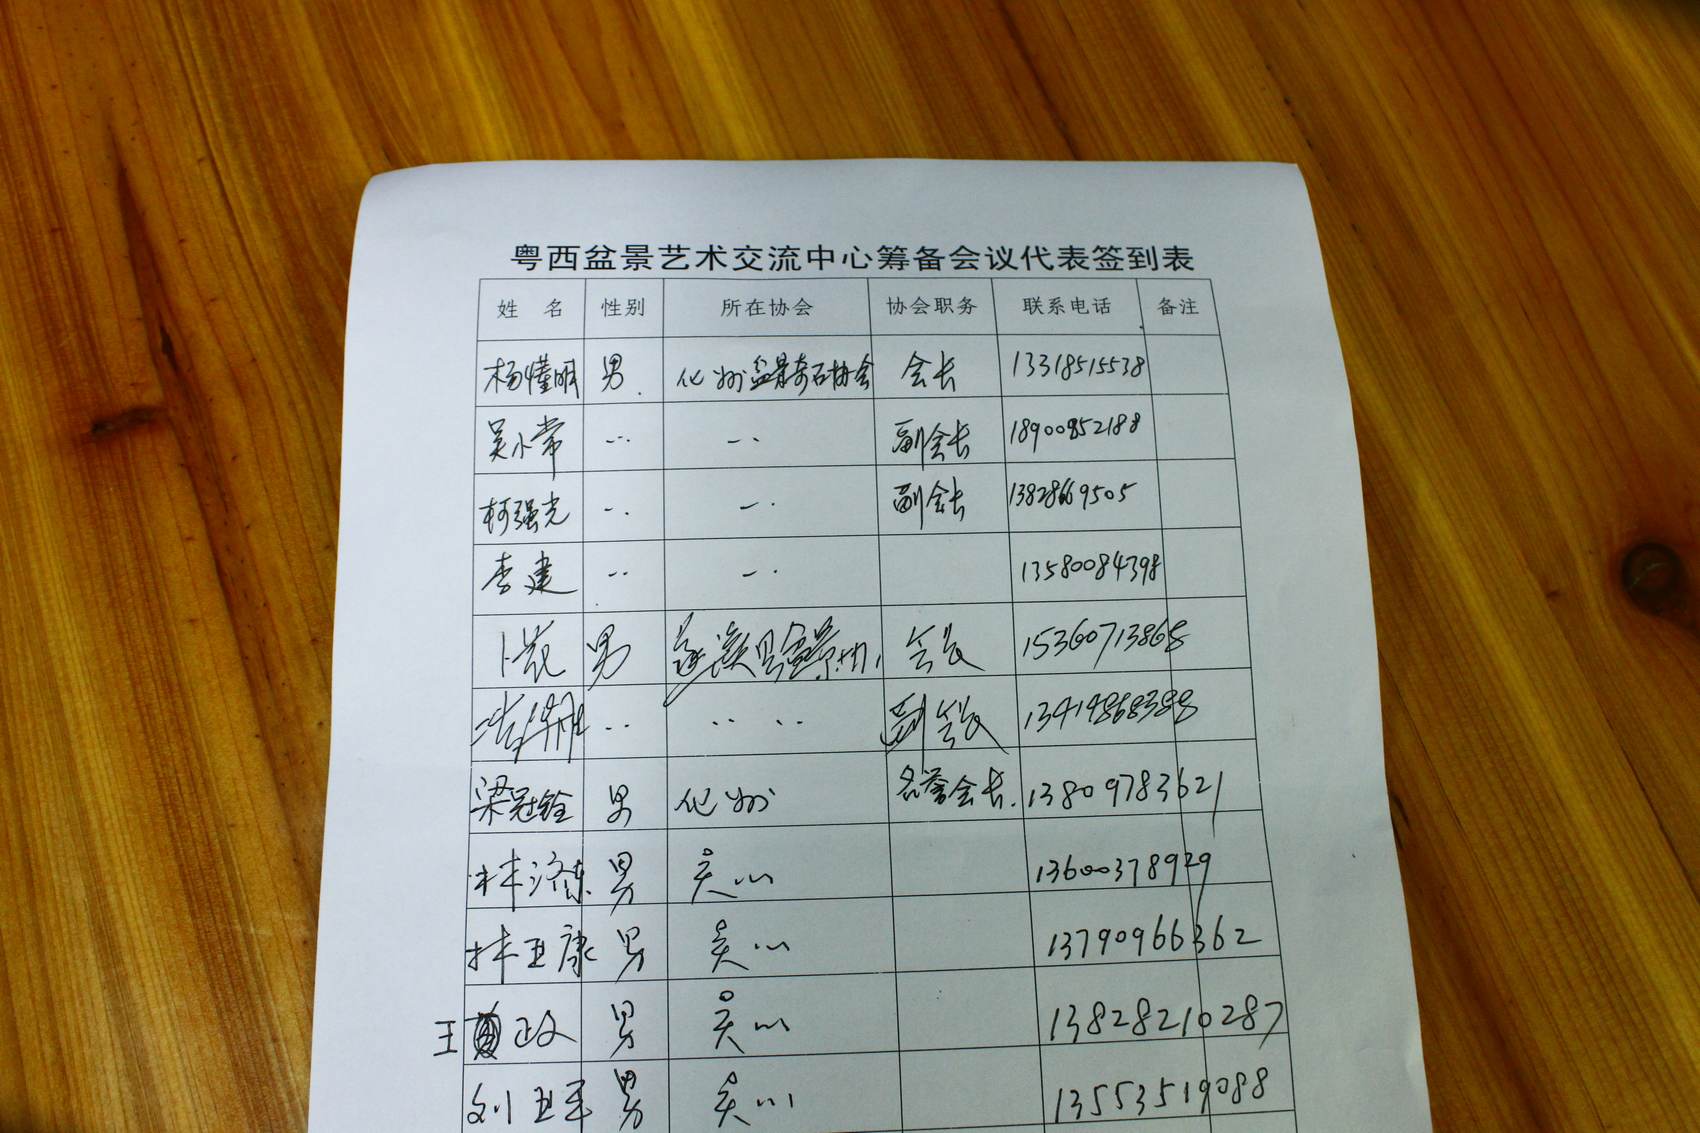 粤西盆景艺术交流中心筹备会议代表签到表
姓 名 性别 所在协会 协会职务 联系电话 备注
杨懂明 男 化州盆景奇石协会 会长 13318515538
吴小常 副会长 18900852188
柯强光 副会长 13828669505
李建 13580084398
男 遂溪县盆景协 会长 15360713868
副会长 13414868388
梁冠铨 男 化州 名誉会长 13809783621
林济东 男 吴川 13600378929
林卫康 男 吴川 13790966362
王 政 男 吴川 13828210287
刘卫军 男 吴川 13553519088